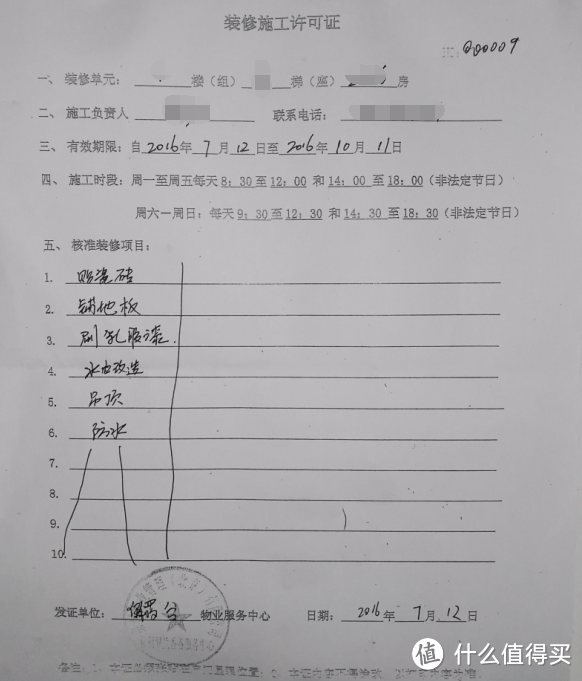 装修施工许可证
NO: 000009
一、装修单元： 楼（组） 梯（座） 房
二、施工负责人 联系电话：
三、有效期限：自2016年7月12日至2016年10月11日
四、施工时段：周一至周五每天8：30至12：00 和14：00 至18：00（非法定节日）
周六一周日：每天9：30至12：30 和14：30 至18：30（非法定节日）
五、核准装修项目：
1. 贴瓷砖
2. 铺地板
3. 刷乳胶漆.
4. 水电改造
5. 吊顶
6. 防水
7.
8.
9.
10.
发证单位： 物业服务中心 日期：2016年7月12日
值 什么值得买